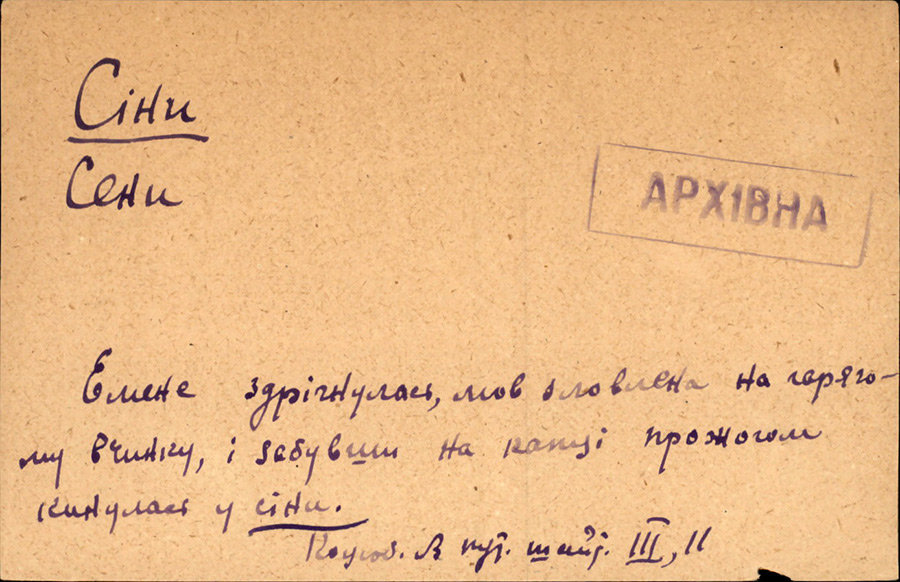 Сіни
Сени
АРХІВНА
Емене здрігнулась, мов зловлена на гарячо-
му вчинку, і забувши на капці прожогом
кинулась у сіни.
Коцюб. В пут. шайт. III, 11